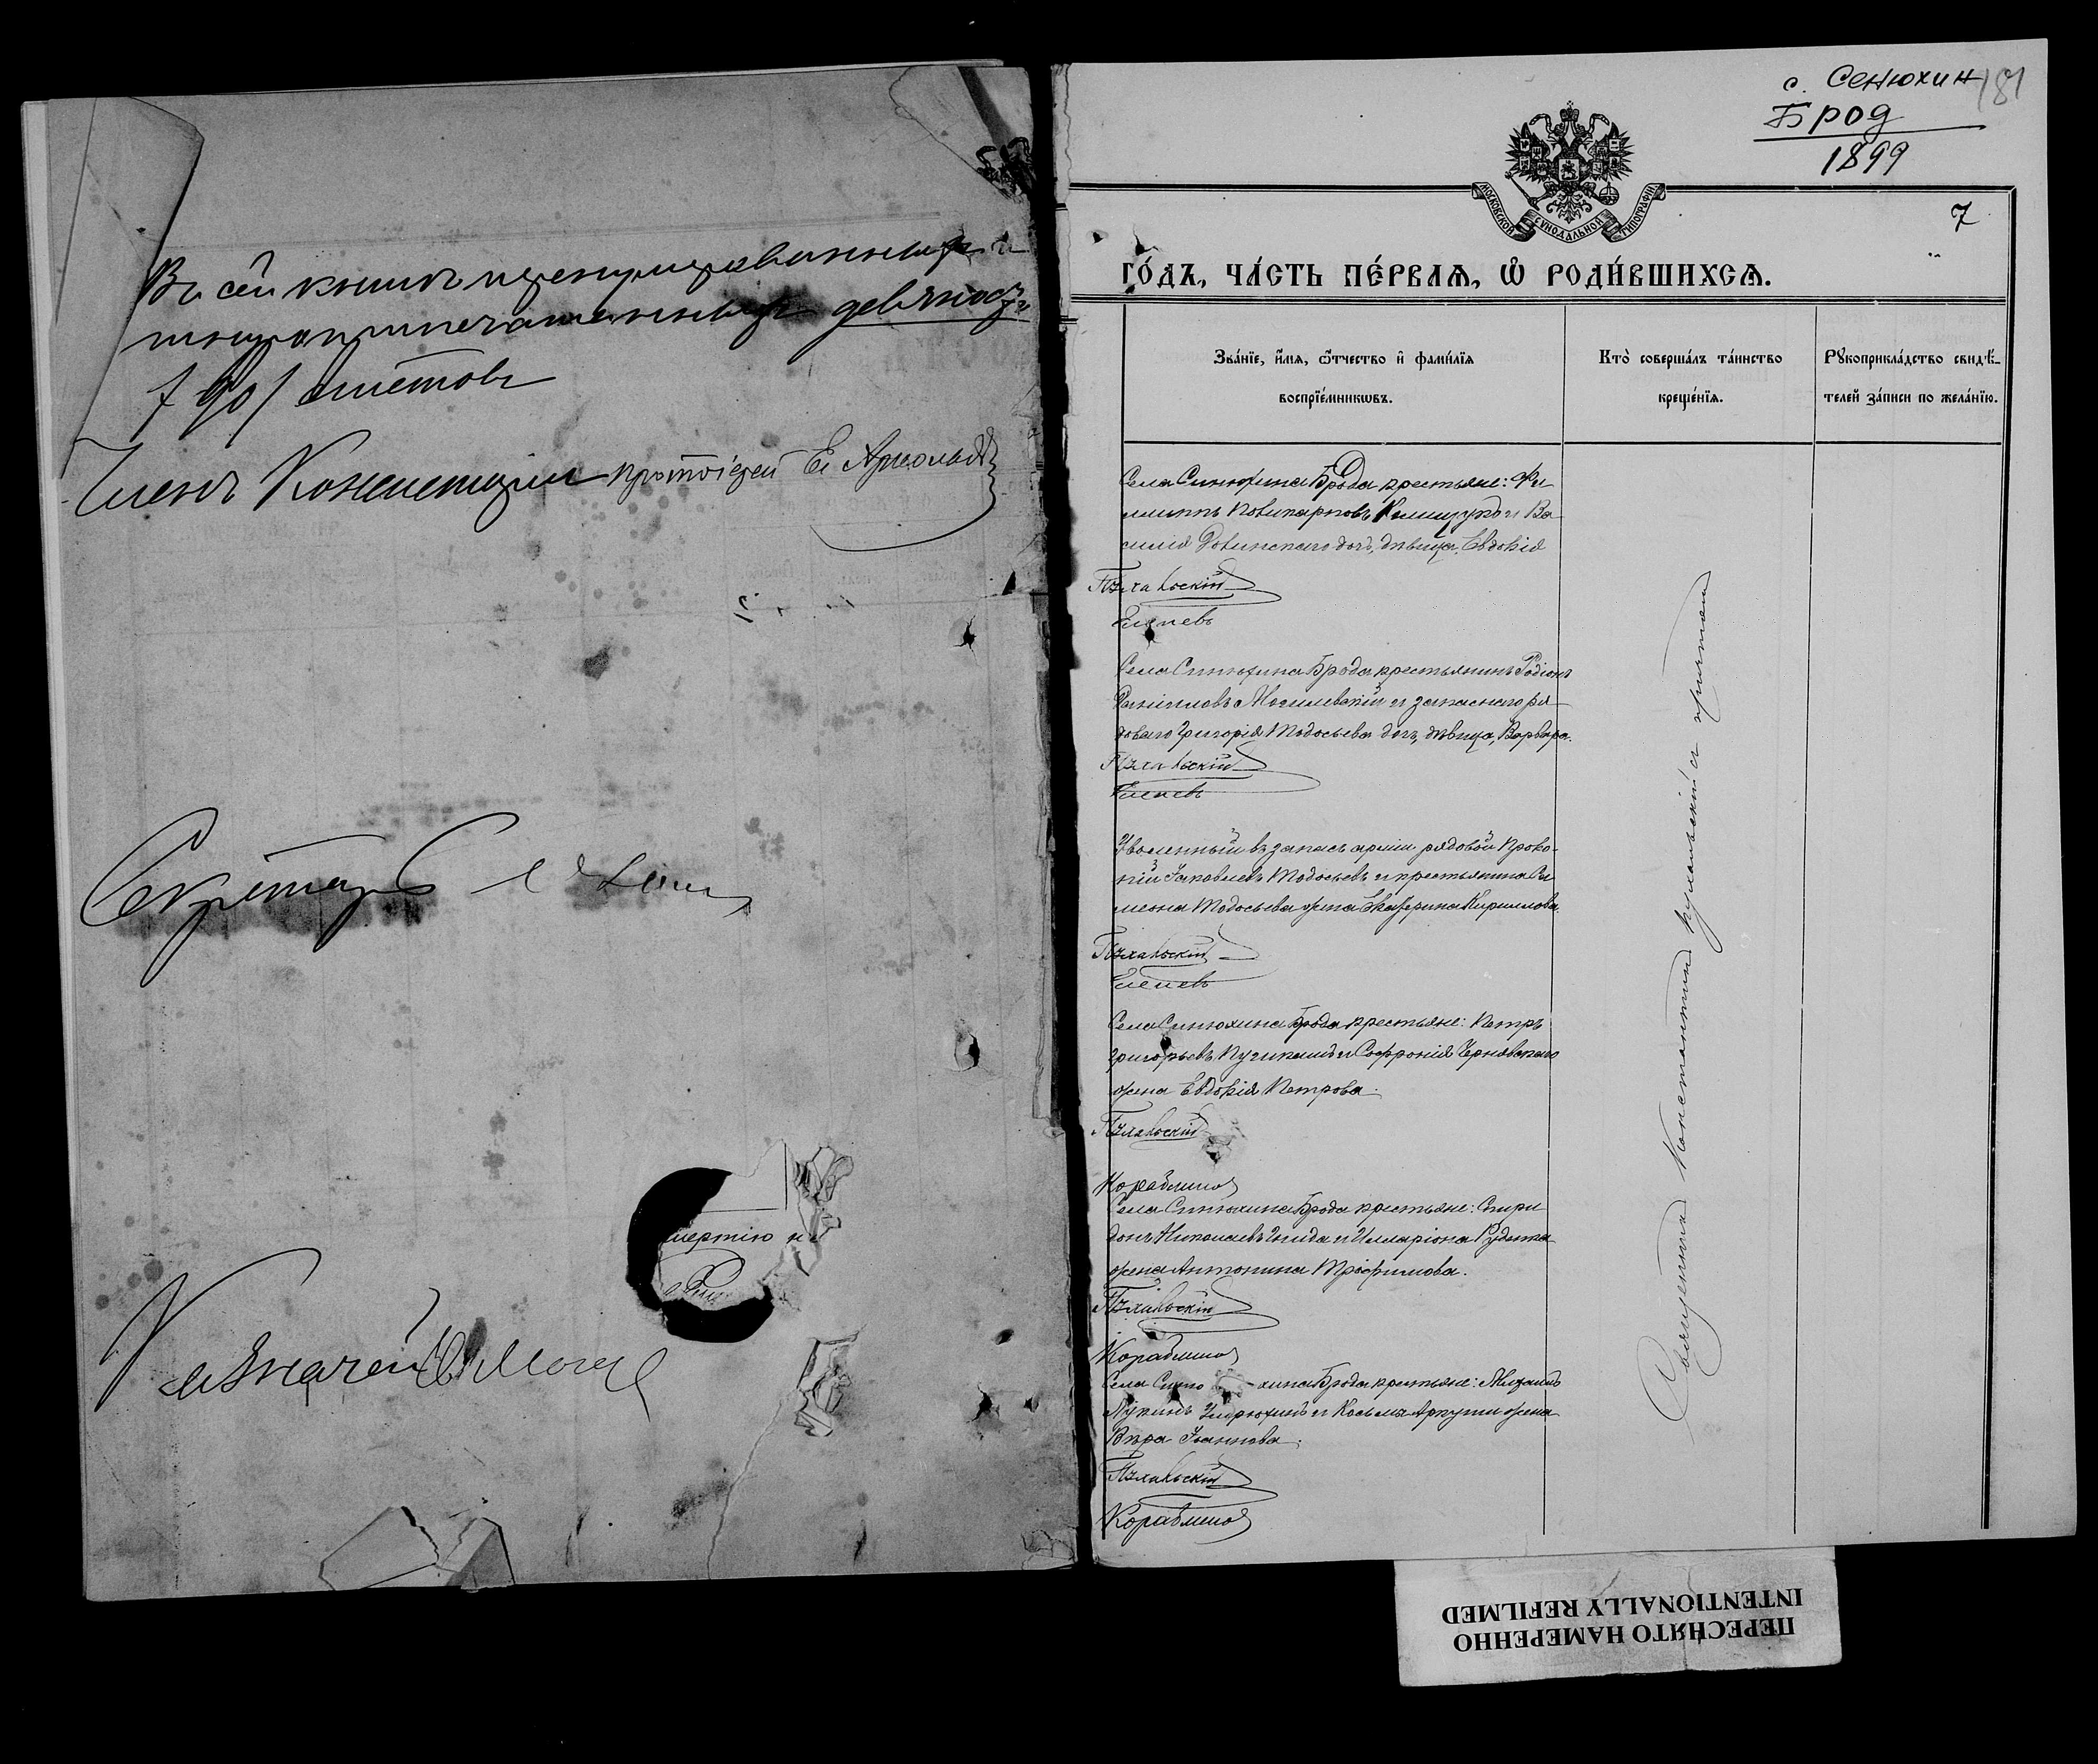 Въ сей книгѣ пренумерованныхъ и
шнуроприпечатанныхъ девяносто
/ 90 / листовъ
Членъ Консисторіи протоіерей Е. Арнольдъ
Секретарь
мертію
Казначей
с. Сенюхин
Брод
1899
181
МОСКОВСКОЙ СѴНОДАЛЬНОЙ ТИПОГРАФІИ
7
го́дъ, ча́сть пе́рваѧ, ѡ҆ роди́вшихсѧ.
Зва́нїе, и҆́мѧ, ѻ҆́тчество и҆ фами́лїѧ
воспрїе́мникѡвъ.
Кто̀ соверша́лъ та́инство
креще́нїѧ.
Рꙋкоприкла́дство свидѣ́-
телей за́писи по жела́нїю.
Села Синюхина Брода крестьяне: Фи
липпъ Поликарповъ и Ва
силія дочь, дѣвица, Евдокія
Пухальскій
Села Синюхина Брода крестьянинъ Родіонъ
Данииловъ Могилевскій и запаснаго ря
доваго Григорія Тодосьева дочь, дѣвица, Варвара.
Пухальскій
Уволенный въ запасъ арміи рядовой Проко-
пій Іаковлевъ Тодосьевъ и крестьянина Си
меона Тодосьева жена Екатерина Кириллова.
Пухальскій
Села Синюхина Брода крестьяне: Петръ
Григорьевъ и Софронія Чернявскаго
жена Евдокія Петрова.
Пухальскій
Кораблиновъ
Села Синюхина Брода крестьяне: Спири
донъ Николаевъ Гнида и Илларіона Руденка
жена Антонина Трофимова.
Пухальскій
Кораблиновъ
Села Синюхина Брода крестьяне: Михаилъ
Лукинъ и Косьмы жена
Вѣра Іоаннова.
Пухальскій
Кораблиновъ
Священникъ Константинъ Пухальскій съ причтомъ
ПЕРЕСНЯТО НАМЕРЕННО
INTENTIONALLY REFILMED